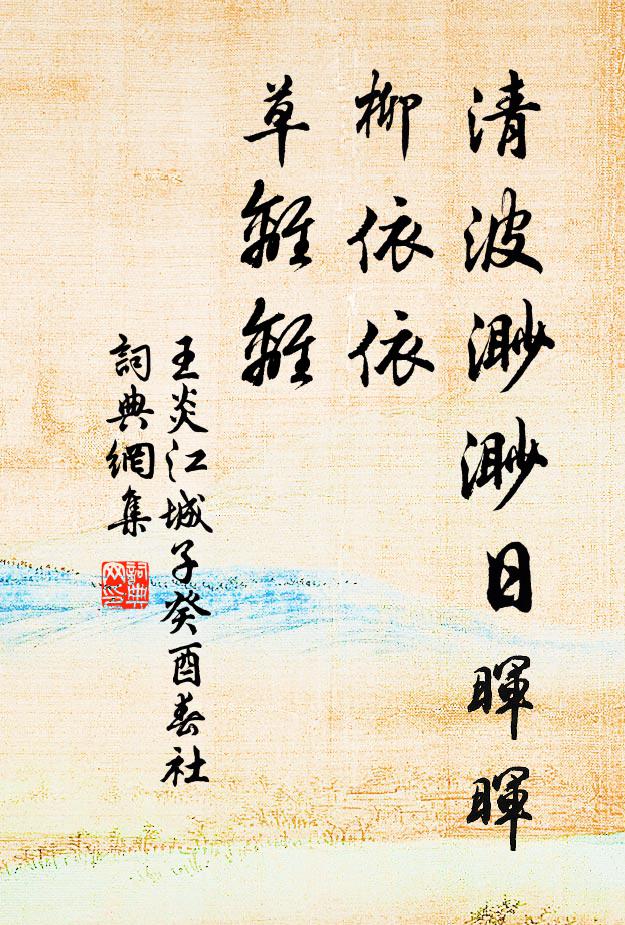 清波渺渺日暉暉
柳依依
草離離
王炎江城子癸酉春社
詞典網集
詞典網印